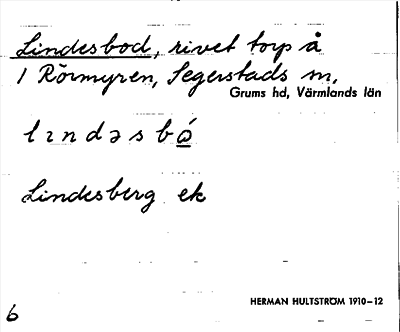 Lindesbod, rivet torp å
1 Rörmyren, Segerstads sn,
Grums hd, Värmlands län
lındəsbó̲
Lindesberg ek
HERMAN HULTSTRÖM 1910–12
6